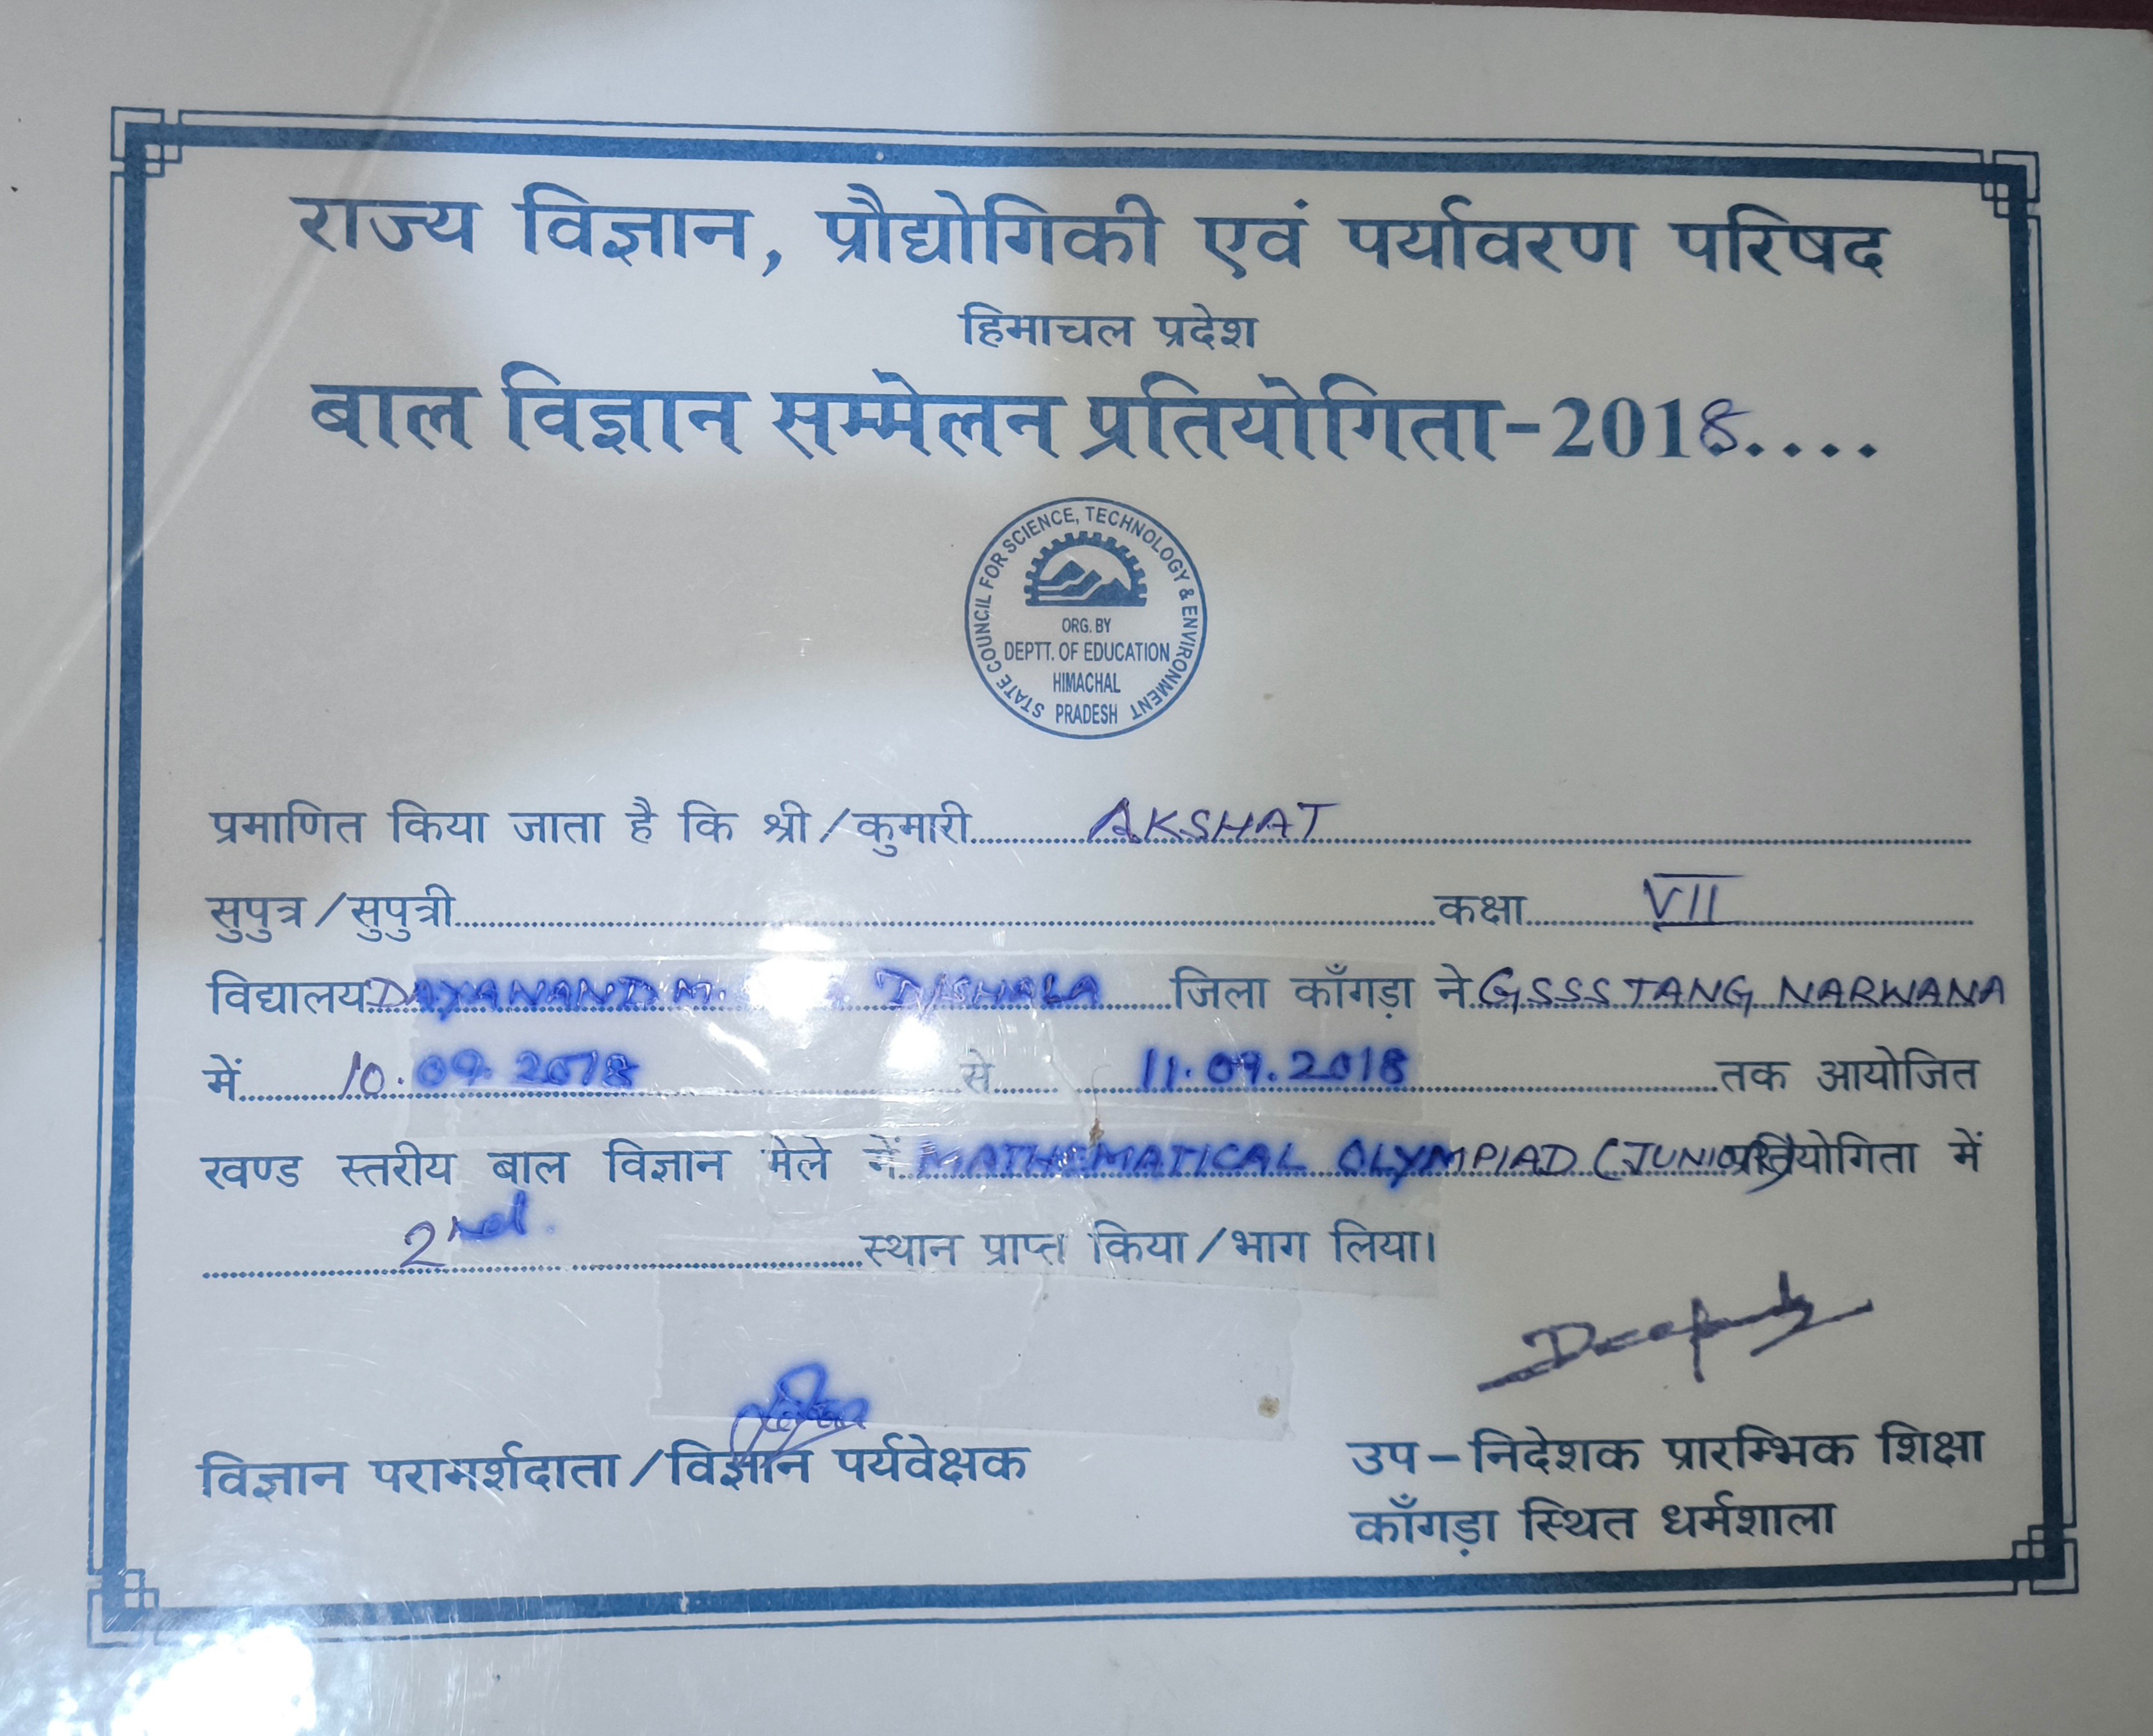 राज्य विज्ञान, प्रौद्योगिकी एवं पर्यावरण परिषद
हिमाचल प्रदेश
बाल विज्ञान सम्मेलन प्रतियोगिता-2018....
STATE COUNCIL FOR SCIENCE, TECHNOLOGY & ENVIRONMENT
ORG. BY
DEPTT. OF EDUCATION
HIMACHAL
PRADESH
प्रमाणित किया जाता है कि श्री/कुमारी AKSHAT
सुपुत्र/सुपुत्री कक्षा VII
विद्यालय DAYANAND M. D/SHALA जिला काँगड़ा ने GSSS TANG NARWANA
में 10.09.2018 से 11.09.2018 तक आयोजित
खण्ड स्तरीय बाल विज्ञान मेले में MATHEMATICAL OLYMPIAD (JUNIOR) प्रतियोगिता में
2nd स्थान प्राप्त किया/भाग लिया।
विज्ञान परामर्शदाता/विज्ञान पर्यवेक्षक
उप-निदेशक प्रारम्भिक शिक्षा
काँगड़ा स्थित धर्मशाला